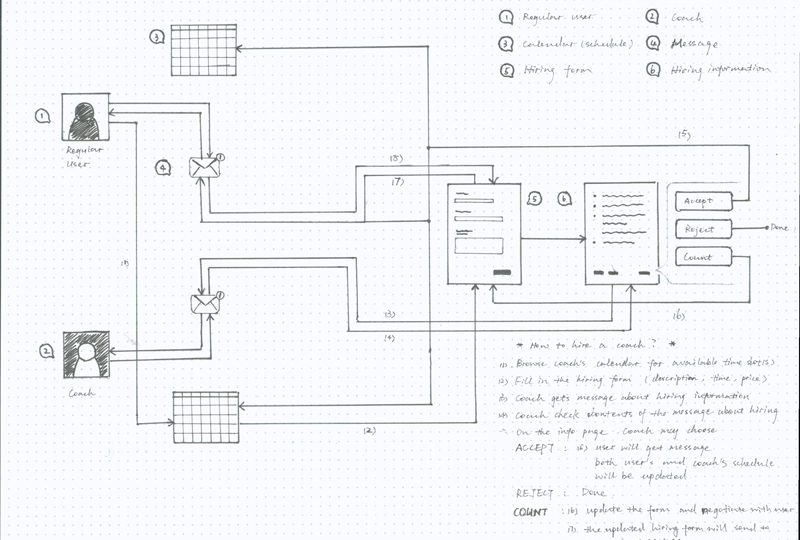 ① Regular user
② Coach
③ Calendar (schedule)
④ Message
⑤ Hiring form
⑥ Hiring information
③
①
Regular
User
④
(5)
(8)
(7)
⑤
⑥
Accept
Reject
Done
Count
(1)
(3)
(6)
(4)
②
Coach
(2)
* How to hire a coach? *
(1). Browse coach's calendar for available time slot(s)
(2) Fill in the hiring form (description, time, price)
(3) Coach gets message about hiring information
(4) Coach check contents of the message about hiring
On the info page. Coach may choose
ACCEPT : (5) user will get message
both user's and coach's schedule
will be updated
REJECT : Done.
COUNT : (6) update the form and negotiate with user
(7) the updated hiring form will send to